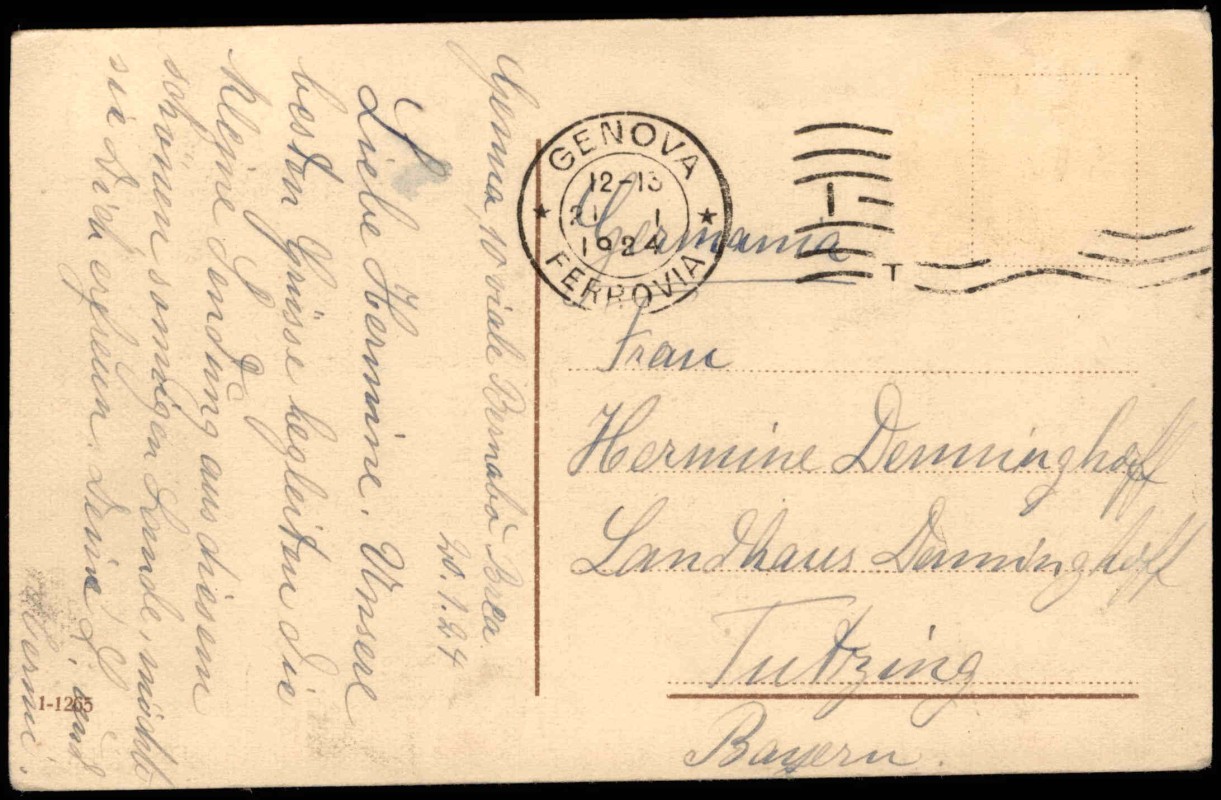 Genua 10 viale Bernabò Brea
20.1.24
Liebe Hermine. Unsere
besten Grüsse begleiten die
kleine Sendung aus diesem
schönen sonnigen Lande, möcht
sie Dich erfreuen. Deine L. und
Hermi.
1-1265
GENOVA
12-13
21 1
1924
FERROVIA
T
Germania
Frau
Hermine Denninghoff
Landhaus Denninghoff
Tutzing
Bayern.